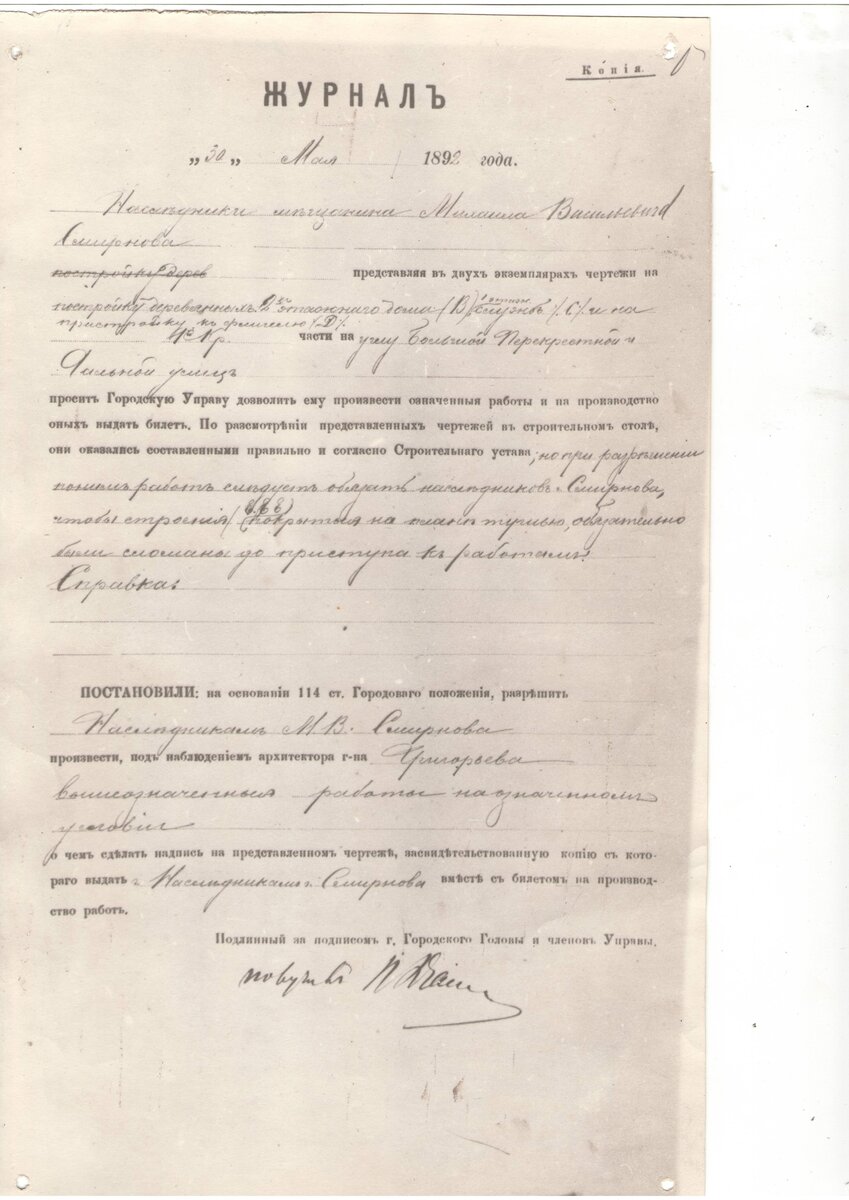 Копія
ЖУРНАЛЪ
„30„ Мая 1892 года.
Наслѣдники мѣщанина Михаила Васильевича
Смирнова
постройку дерев представляя въ двухъ экземплярахъ чертежи на
1 этажн.
постройку деревяннаго 2хъ этажнаго дома (В) службъ (С) и на
пристройку къ флигелю (D)
части на углу Большой Перекрестной и
улицъ
проситъ Городскую Управу дозволить ему произвести означенныя работы и на производство
оныхъ выдать билетъ. По разсмотрѣніи представленныхъ чертежей въ строительномъ столѣ,
они оказались составленными правильно и согласно Строительнаго устава; но при разрѣшеніи
работъ слѣдуетъ обязать наслѣдниковъ Смирнова,
чтобы строенія покрытыя на планѣ тушью, обязательно
были сломаны до приступа къ работамъ.
Справка:
ПОСТАНОВИЛИ: на основаніи 114 ст. Городоваго положенія, разрѣшить
Наслѣдникамъ М. В. Смирнова
произвести, подъ наблюденіемъ архитектора г-на Григорьева
вышеозначенныя работы на означенномъ
условіи
о чемъ сдѣлать надпись на представленномъ чертежѣ, засвидѣтельствованную копію съ кото-
раго выдать г. Наслѣдникамъ г. Смирнова вмѣстѣ съ билетомъ на производ-
ство работъ.
Подлинный за подписомъ г. Городского Головы и членовъ Управы.